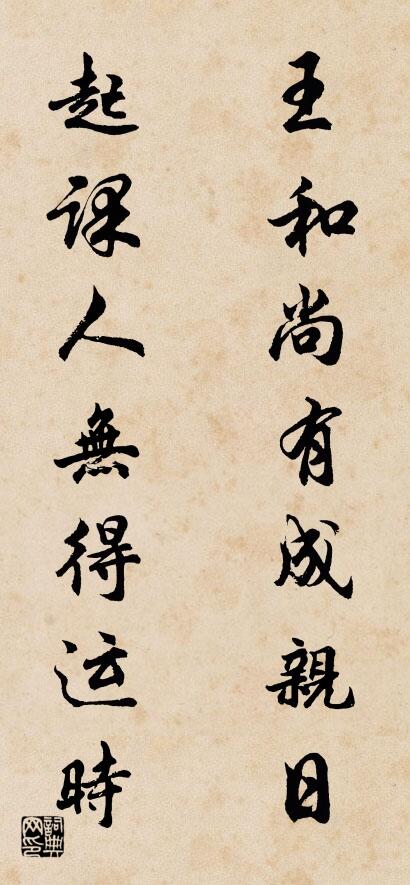 王和尚有成親日
起課人無得运時
詞典网印